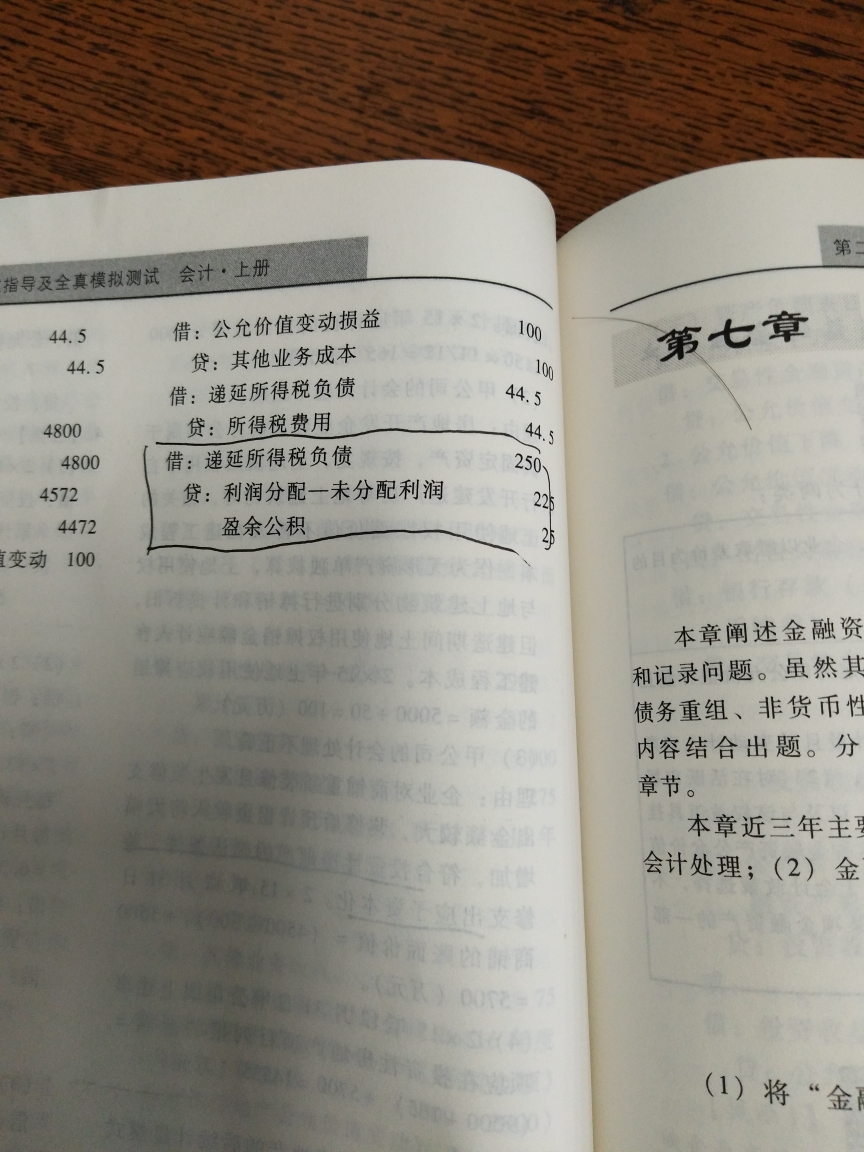 指导及全真模拟测试 会计·上册
44.5
44.5
4800
4800
4572
4472
值变动 100
借：公允价值变动损益 100
贷：其他业务成本 100
借：递延所得税负债 44.5
贷：所得税费用 44.5
借：递延所得税负债 250
贷：利润分配—未分配利润 225
盈余公积 25
第二
第七章
本章阐述金融资
和记录问题。虽然其
债务重组、非货币性
内容结合出题。分
章节。
本章近三年主要
会计处理；（2）金
（1）将“金融